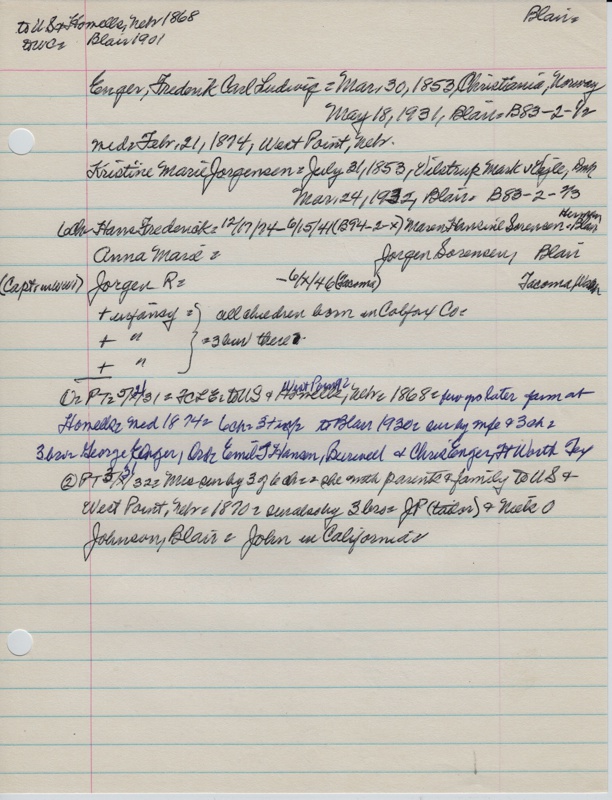 to US & Howells, Nebr 1868
to WC= Blair 1901
Blair=
Enger, Frederik Carl Ludwig = Mar, 30, 1853, Christiania, Norway
May 18, 1931, Blair= B83-2-1/2
md= Febr, 21, 1874, West Point, Nebr.
Kristine Marie Jorgensen = July 31, 1853, Mark Vejle, Dmk
Mar. 24, 1932, Blair= B83-2-2/3
6ch= Hans Frederick= 12/17/74-6/15/41 (B94-2-X) Maren Hansine Sorensen= Blair
Anna Marie= Jorgen Sorensen, Blair
(Capt in WWI) Jorgen R= -6/X/46 (Tacoma) Tacoma, Wash
+ infancy = } all children born in Colfax Co=
+ " } =3 bur there
+ "
① PT= 31= FCLE= to US & West Point= Howells, Nebr= 1868= few yrs later farm at
Howells= md 1874= 6ch= 3+inf= to Blair 1930= sur by wife & 3ch=
3 bros= George Enger, Emil T Hansen, Burwell & Chris Enger, Ft Worth Tex
② PT 3/31/32= Mrs= sur by 3 of 6ch= she with parents & family to US &
West Point, Nebr= 1870= sur also by 3 bros= JP (tailor) & Niels O
Johnson, Blair= John in California=